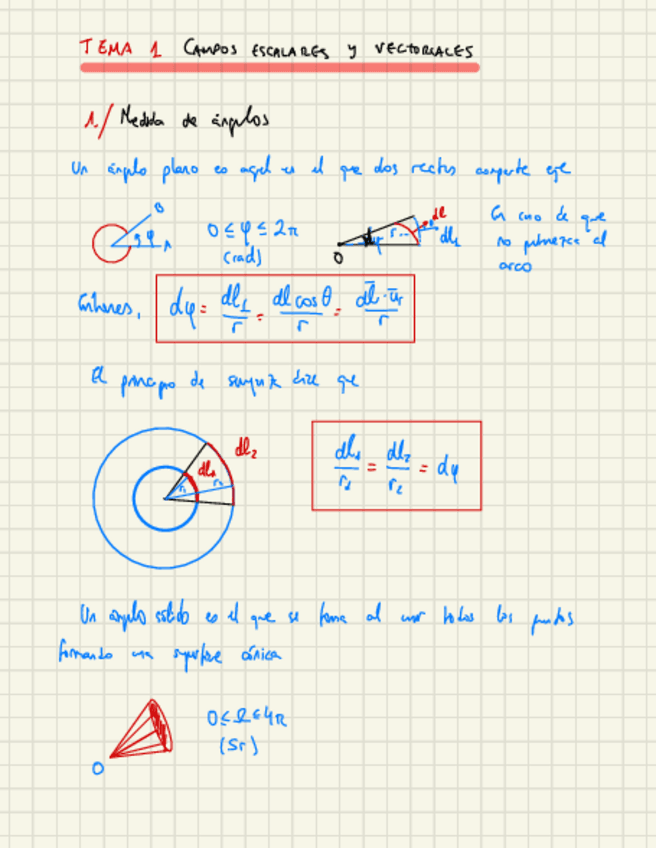 TEMA 1 CAMPOS ESCALARES Y VECTORIALES
1./ Medida de ángulos
Un ángulo plano es aquel en el que dos rectas comparte eje
B
φ A
0 ≤ φ ≤ 2π
(rad)
O dφ r dl dl⊥
En caso de que
no pertenezca al
arco
Entonces, dφ = dl⊥/r = dl cos θ/r = dl̄ · ūr/r
El principio de semejanza dice que
dl2
dl1
r1 r2
dl1/r1 = dl2/r2 = dφ
Un ángulo sólido es el que se forma al unir todos los puntos
formando una superficie cónica
0 ≤ Ω ≤ 4π
(Sr)
O